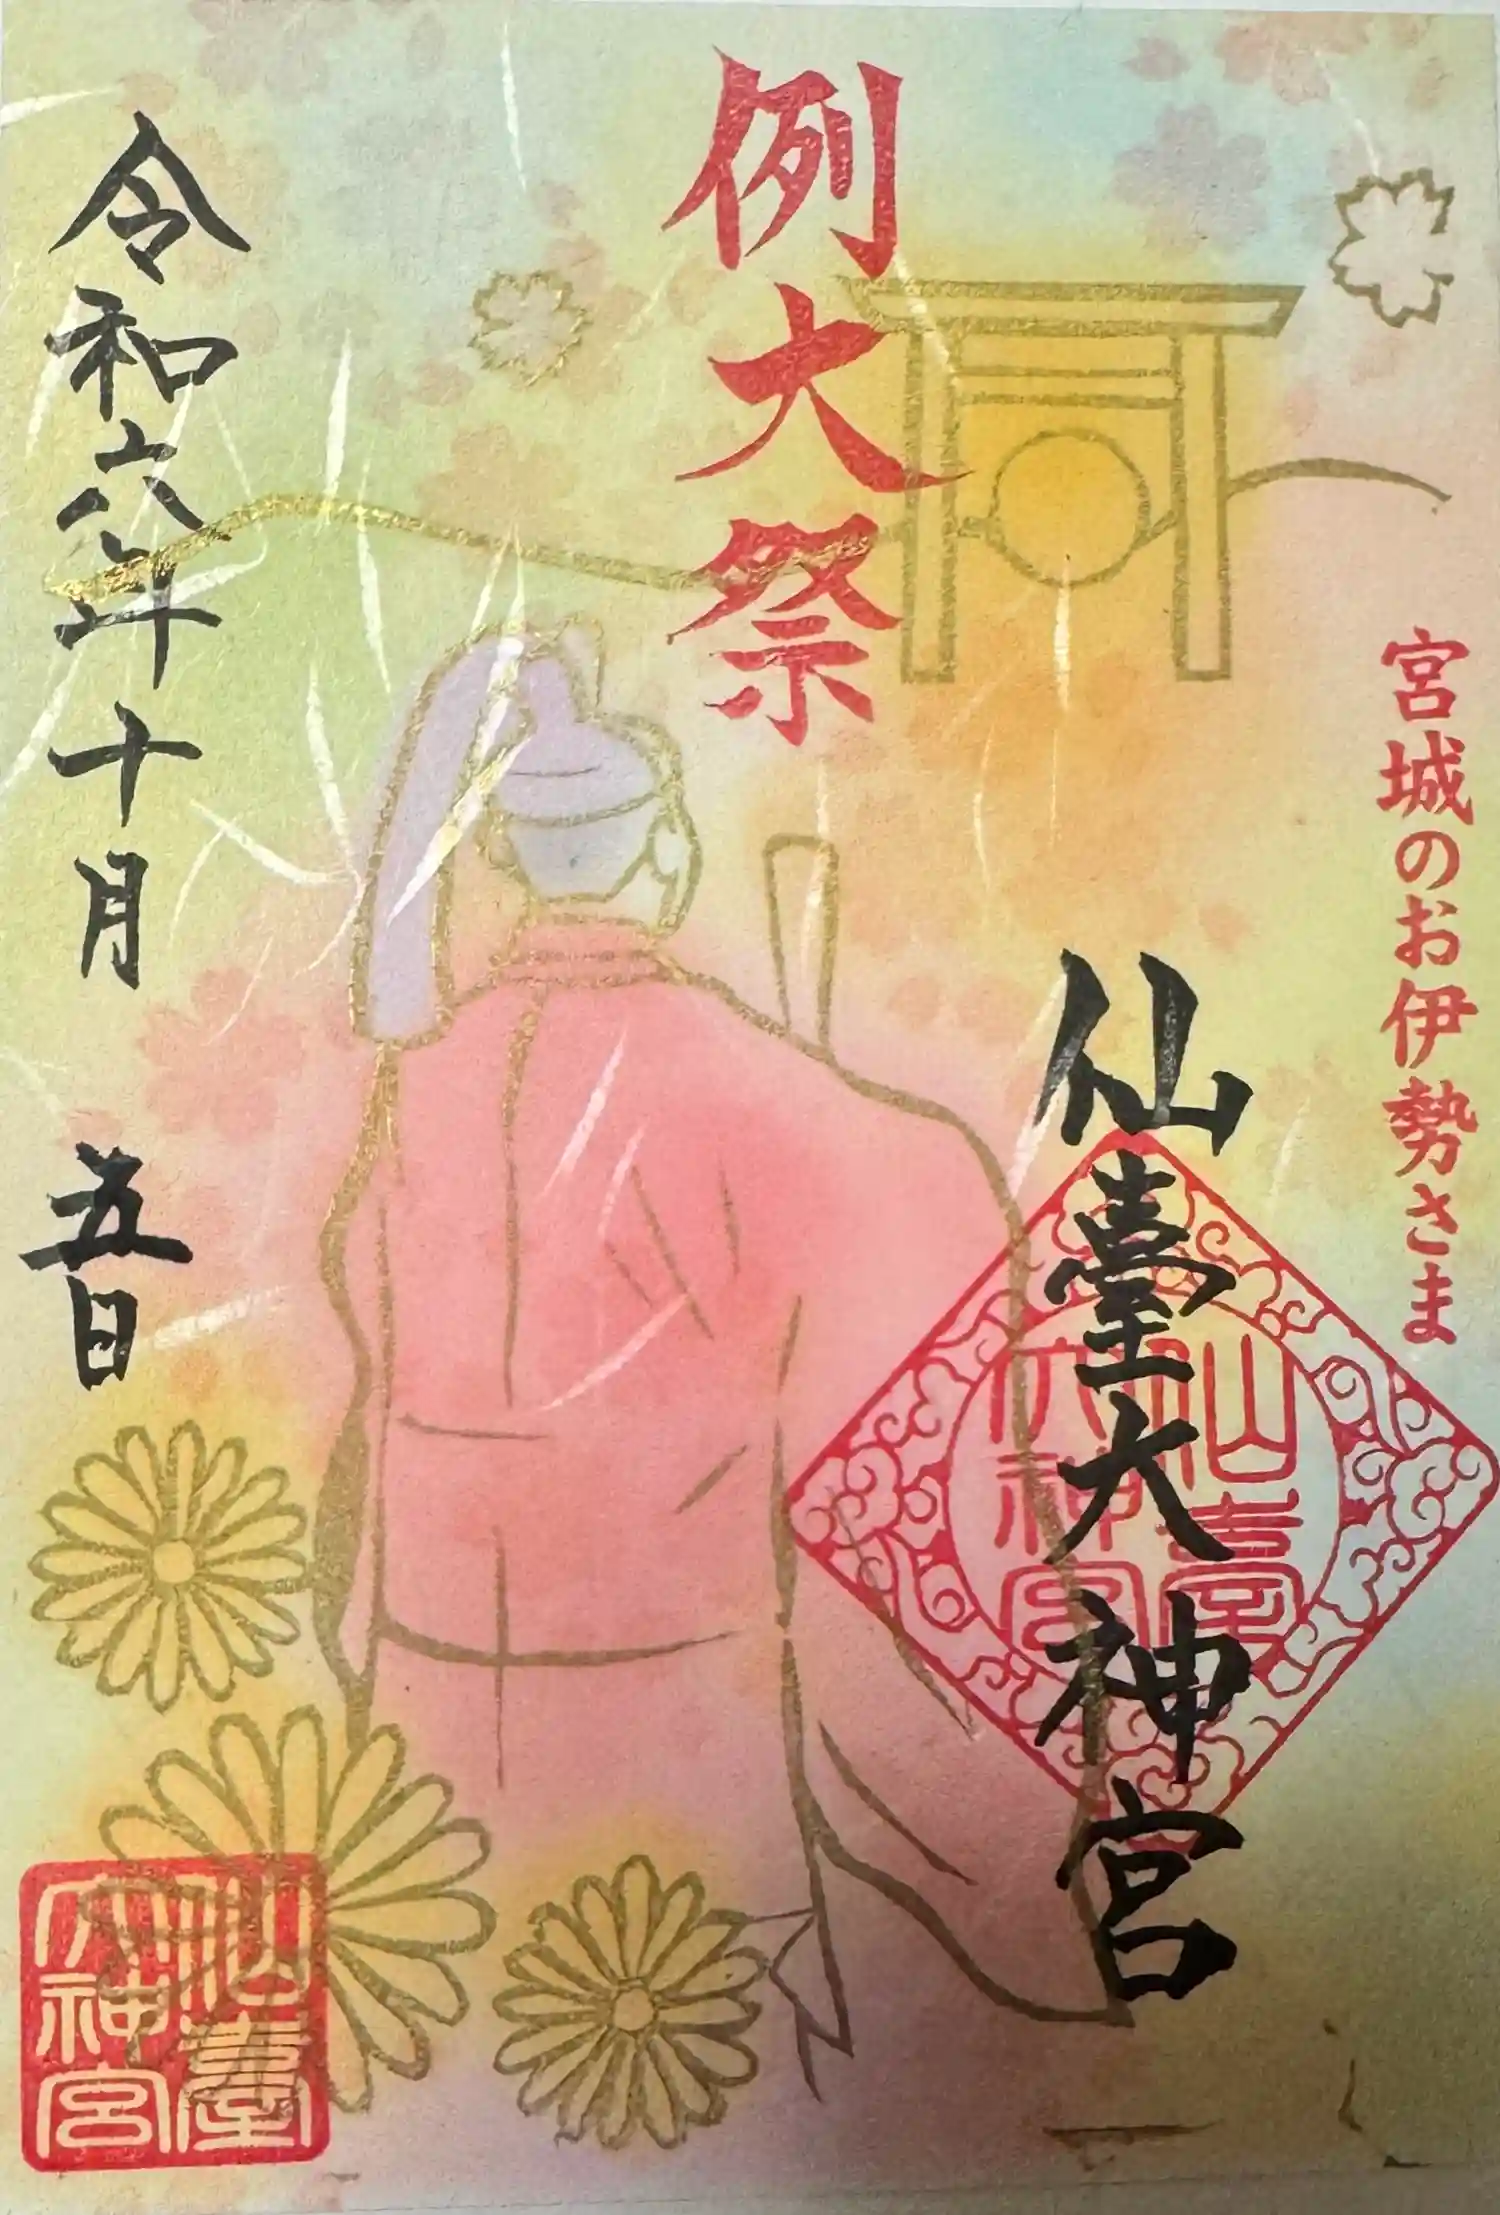 宮城のお伊勢さま
仙臺大神宮
仙臺
大神宮
例大祭
令和六年十月 五日
仙臺
大神宮